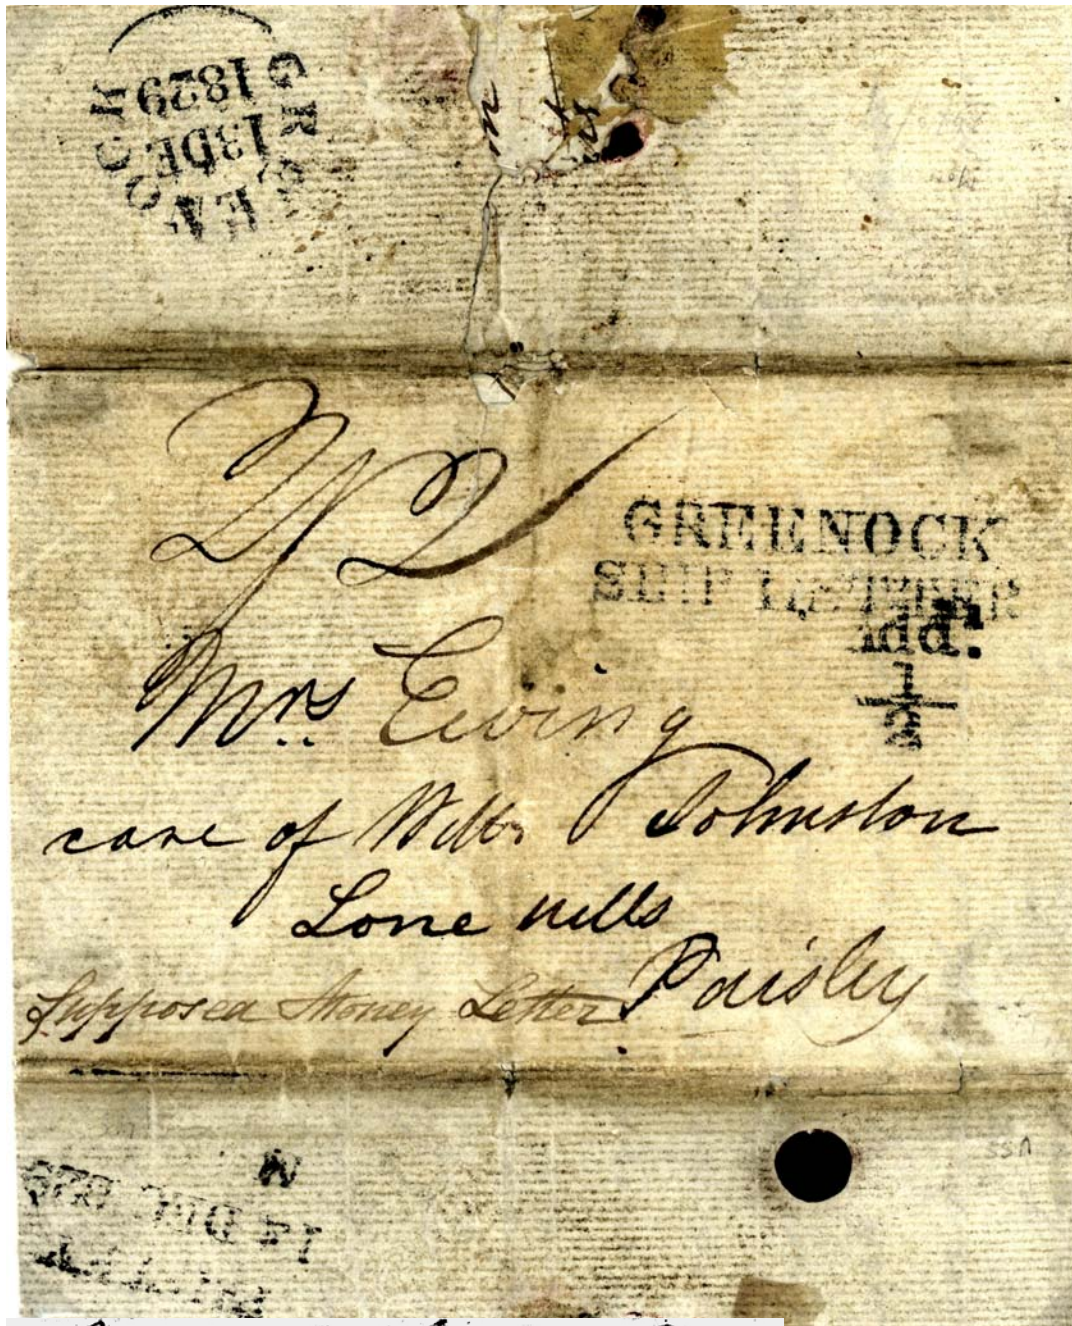 GREENOCK
13 DE
1829
GREENOCK
SHIP LETTER
Add!
½
Mrs Ewing
care of Willm Johnston
Lone wells
Paisley
Supposed Money Letter
M
14 DEC 829